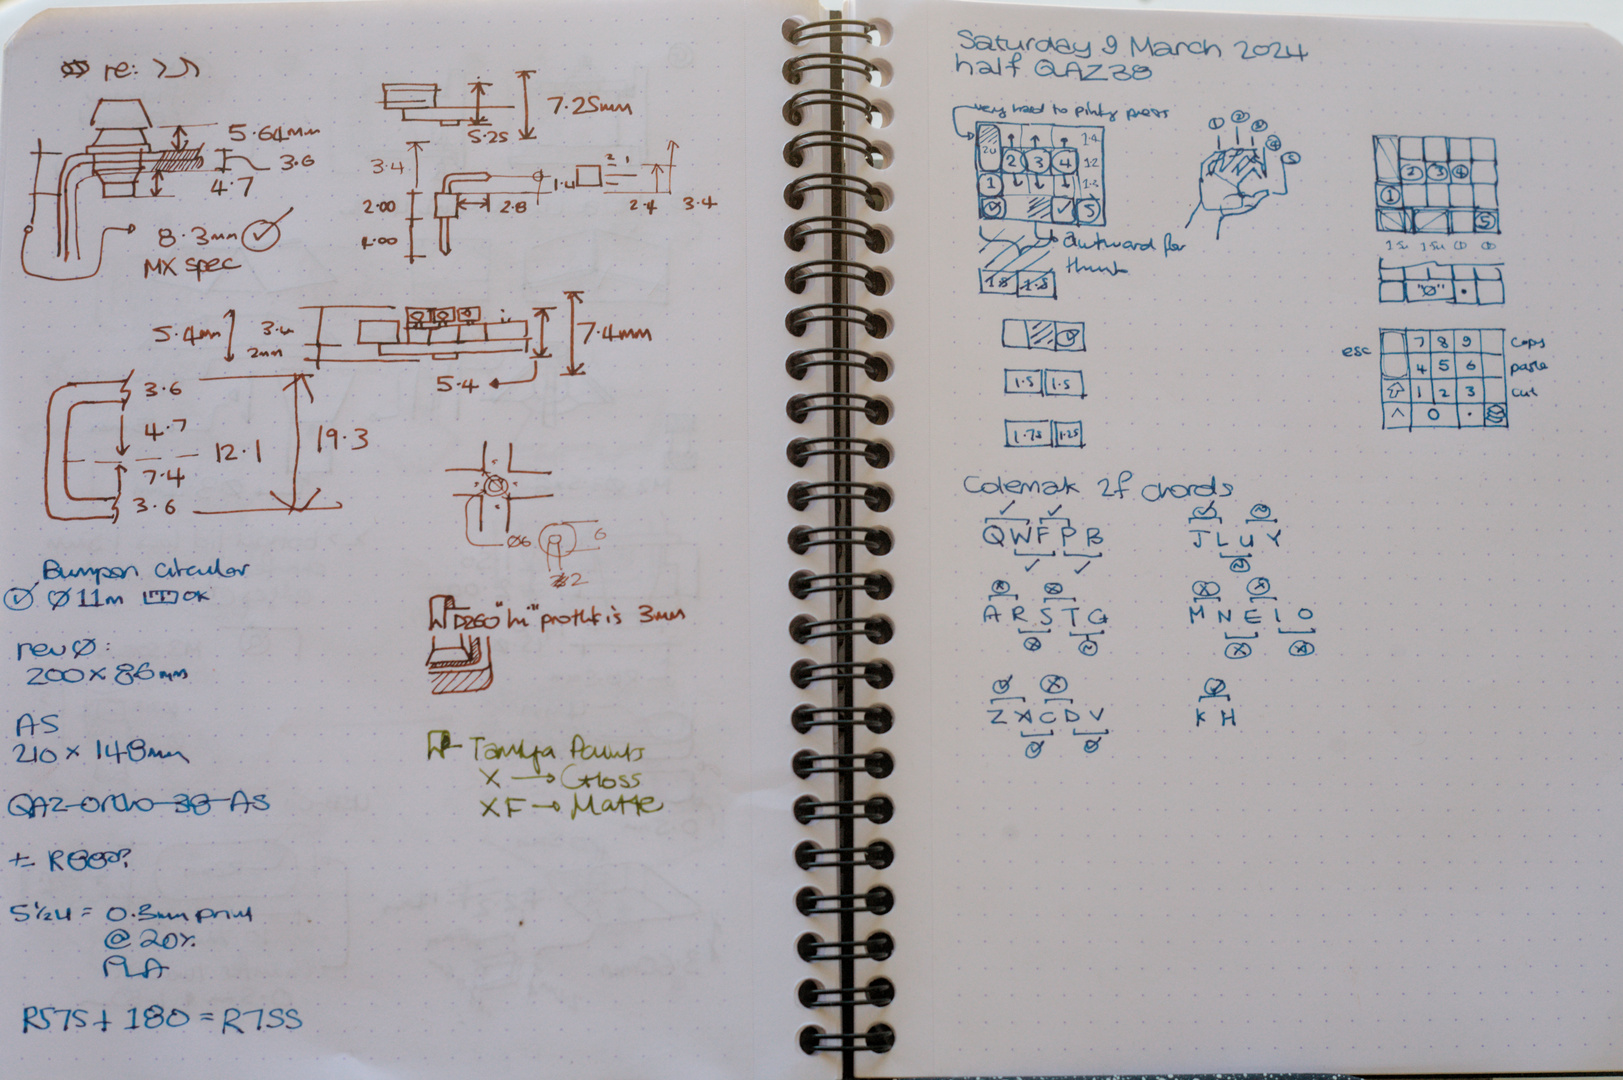 re:
5.64mm
3.6
4.7
8.3mm
MX spec
7.25mm
5.25
3.4
2.00
2.8
1.4
2 1
2.4
3.4
5.4mm
2mm
7.4mm
5.4
3.6
4.7
7.4
3.6
12.1
19.3
Ø6
6
Bumpon circular
Ø 11m OK
rev Ø:
200 x 86mm
A5
210 x 148mm
QAZ ortho 38 A5
5½u = 0.3mm print
@ 20%
PLA
R575 + 180 = R755
"hi" is 3mm
Tamiya Paints
X → Gloss
XF → Matte
Saturday 9 March 2024
half QAZ38
very hard to pinky press
2u
2 3 4
1
5
awkward for
thumb
1.5 1.5
1.75 1.25
1 2 3 4 5
2 3 4
1
5
"Ø" .
esc
7 8 9 copy
4 5 6 paste
1 2 3 cut
^ 0 .
Colemak 2f chords
Q W F P B
J L U Y
A R S T G
M N E I O
Z X C D V
K H